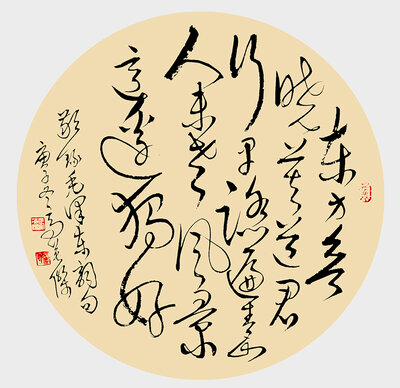 东方欲
晓莫道君
行早踏遍青山
人未老风景
这边独好
敬录毛泽东词句
庚子冬